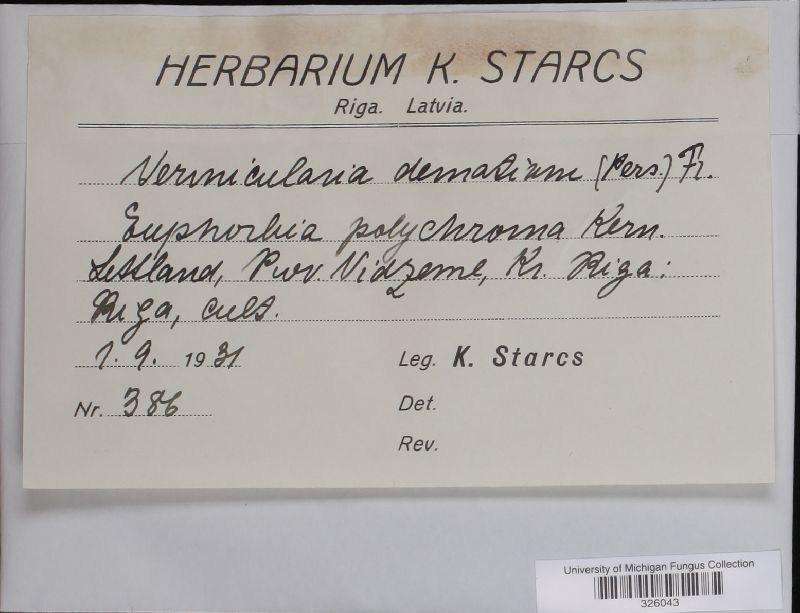 HERBARIUM K. STARCS
Riga. Latvia.
Vermicularia dematium (Pers.) Fr.
Euphorbia polychroma Kern.
Lettland, Prov. Vidzeme, Kr. Riga:
Riga, cult.
1. 9. 1931 Leg. K. Starcs
Nr. 386 Det.
Rev.
University of Michigan Fungus Collection
326043